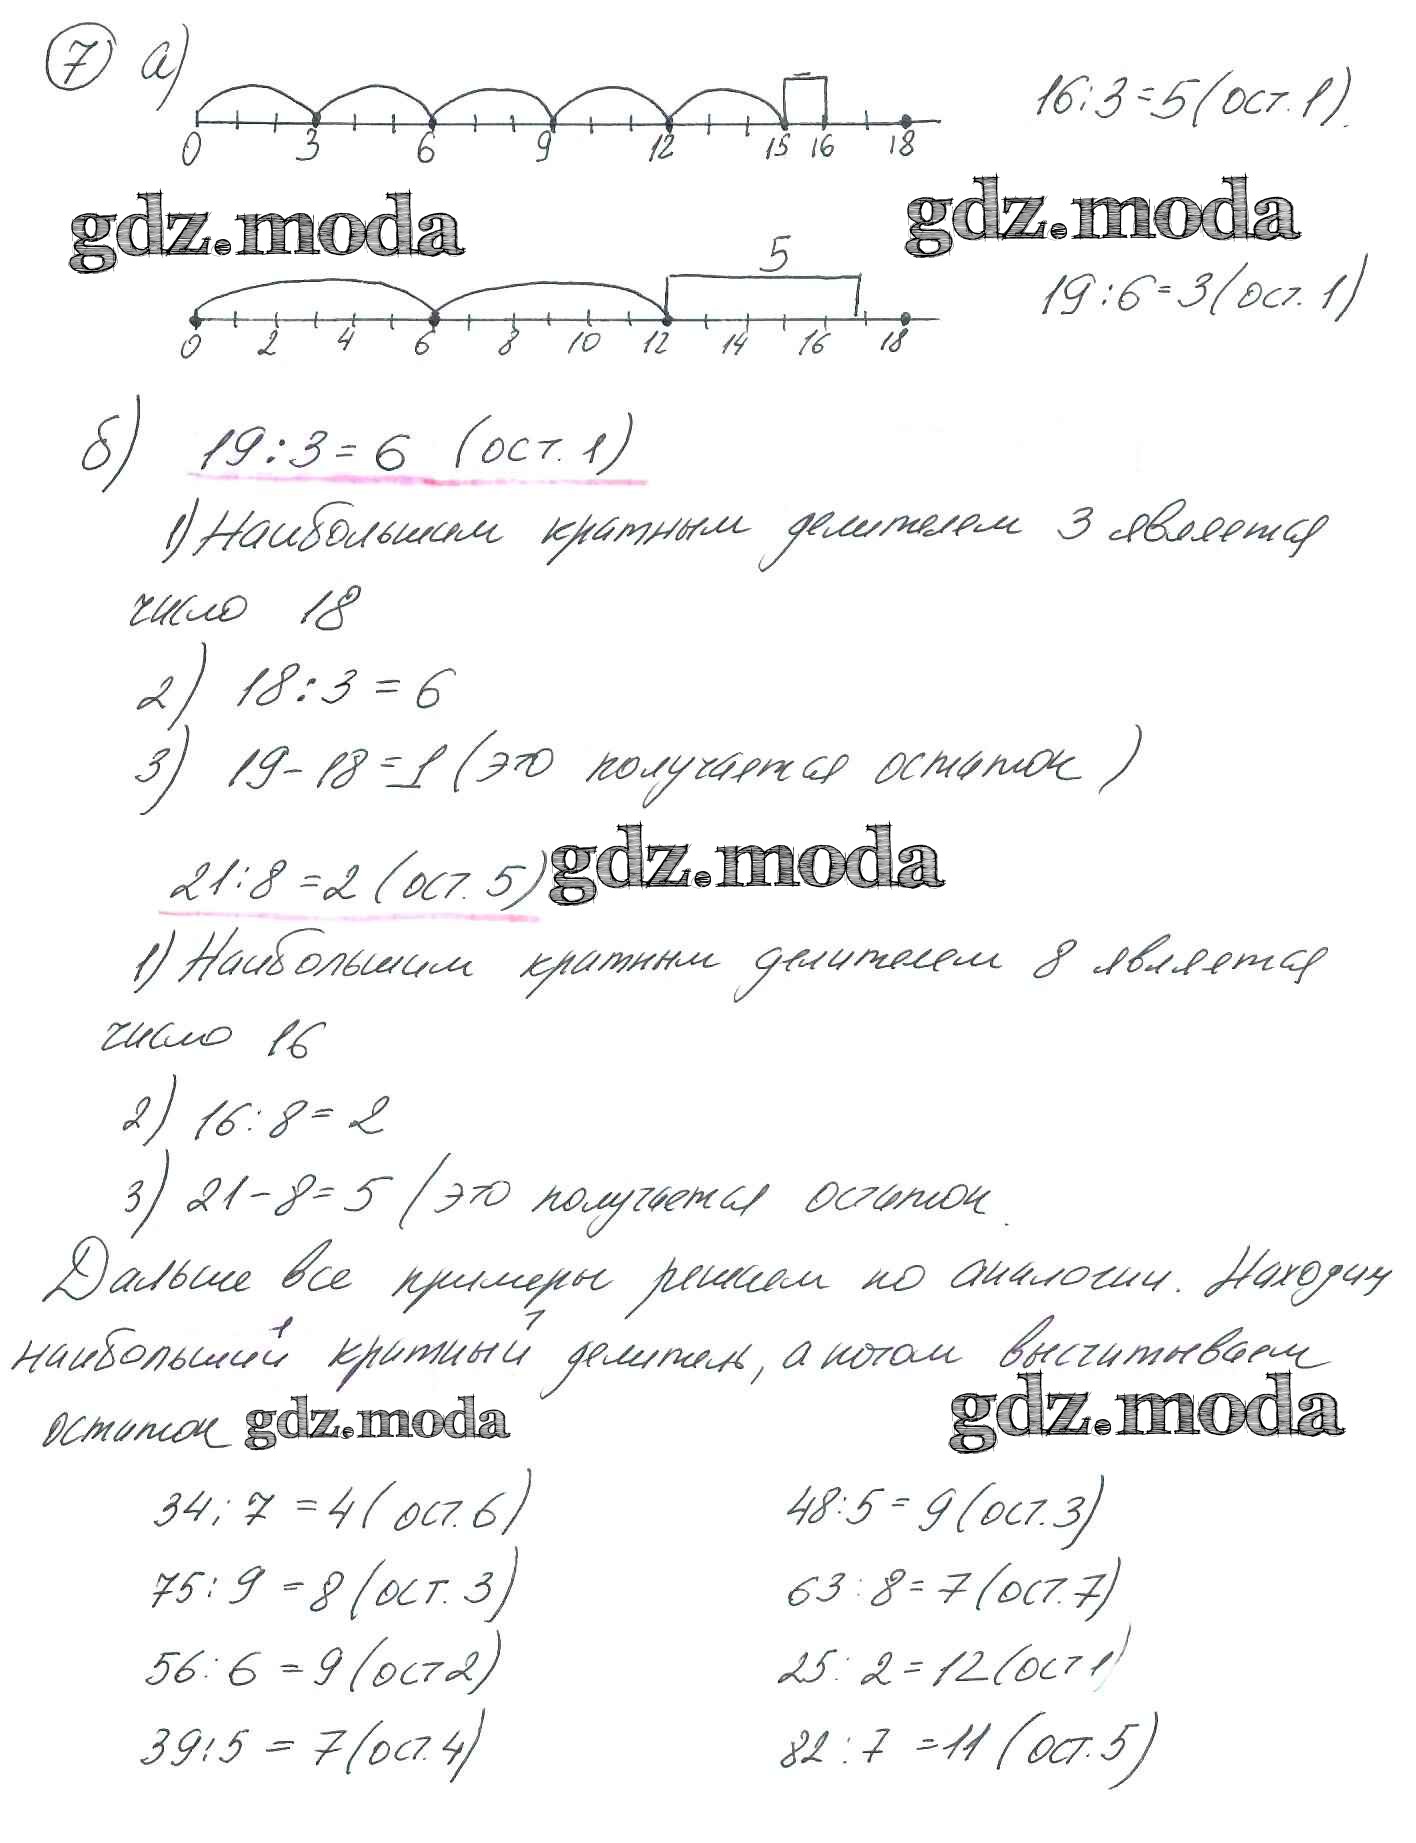 7 а)
16:3=5(ост.1).
0 3 6 9 12 15 16 18
gdz.moda gdz.moda
5
19:6=3(ост.1)
0 2 4 6 8 10 12 14 16 18
б) 19:3=6 (ост.1)
1) Наибольшим кратным делителем 3 является
число 18
2) 18:3=6
3) 19-18=1 (это получается остаток)
21:8=2(ост.5) gdz.moda
1) Наибольшим кратным делителем 8 является
число 16
2) 16:8=2
3) 21-8=5 (это получается остаток.
Дальше все примеры решаем по аналогии. Находим
наибольший кратный делитель, а потом высчитываем
остаток gdz.moda gdz.moda
34:7=4(ост.6) 48:5=9(ост.3)
75:9=8(ост.3) 63:8=7(ост.7)
56:6=9(ост2) 25:2=12(ост1)
39:5=7(ост.4) 82:7=11(ост.5)